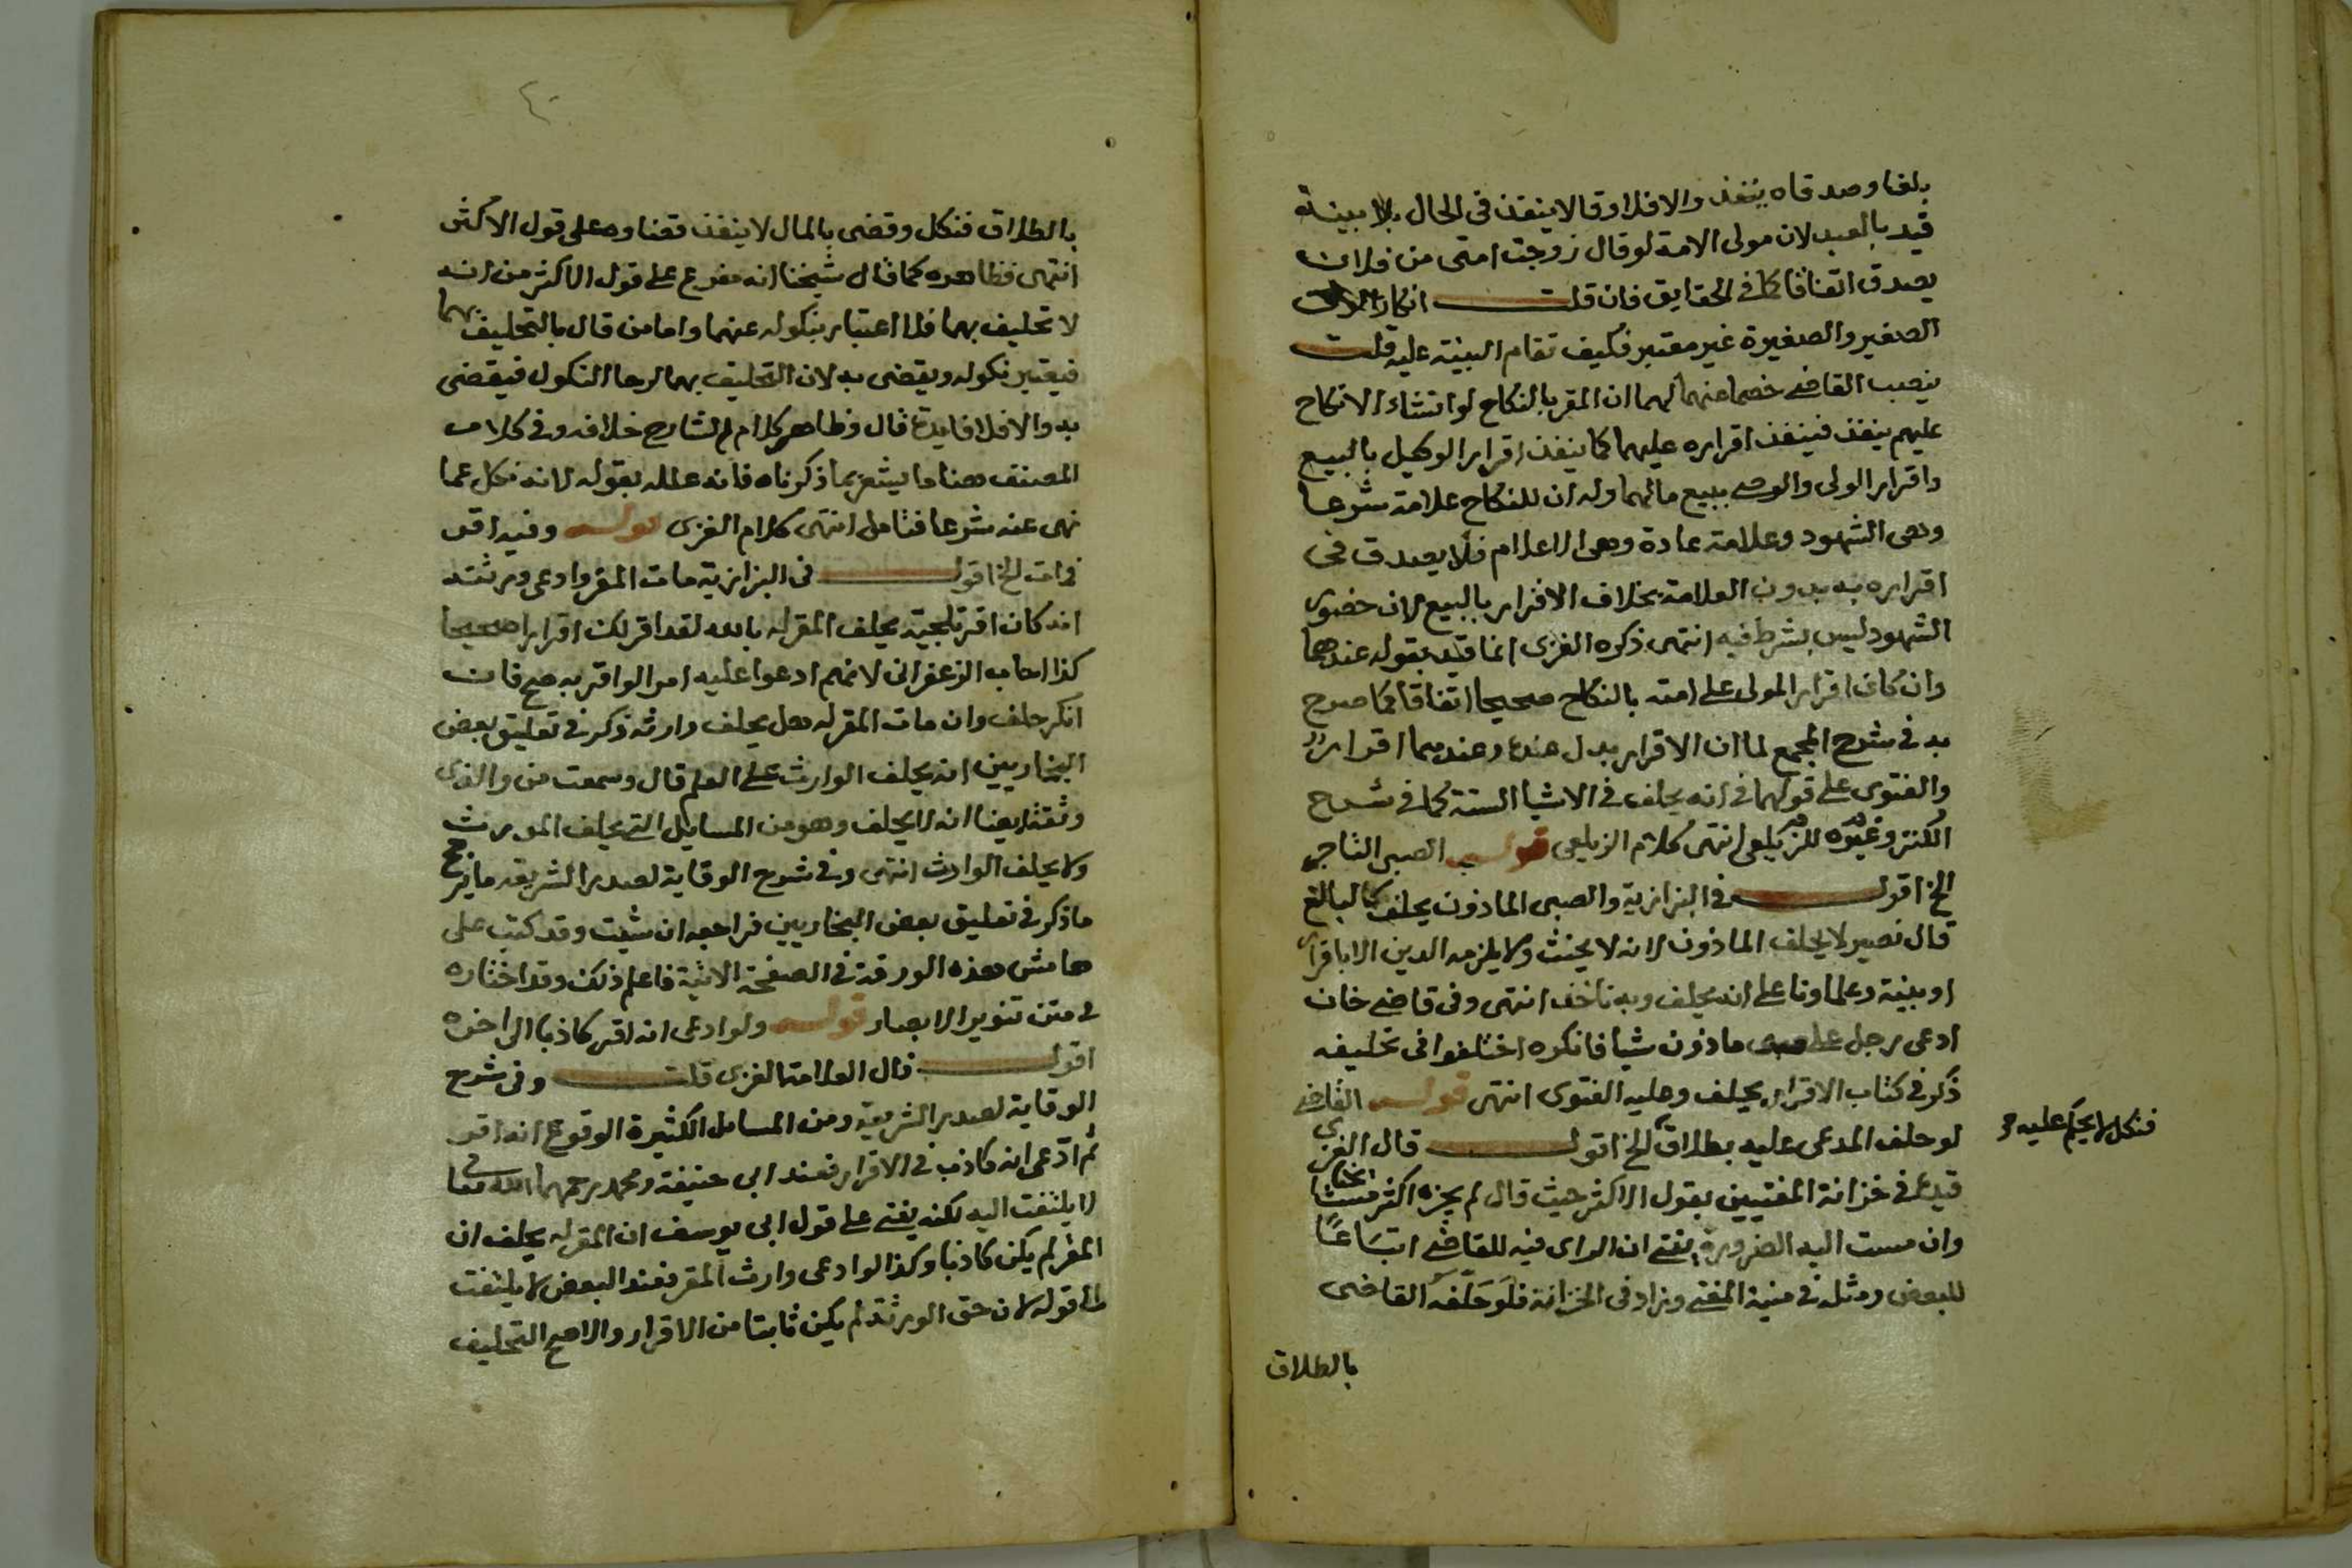 بلغا وصدقاه ينفذ والا فلا وقالا ينفذ في الحال بلا بينة
قيد بالعبد لان مولى الامة لو قال زوجت امتى من فلان
يصدق اتفاقا كما في الحقايق فان قلت انكار
الصغير والصغيرة غير معتبر فكيف تقام البينة عليه قلت
ينصب القاضي خصما عنهما لهما ان المقر بالنكاح لو انشاء الانكاح
عليهم ينفذ فينفذ اقراره عليهما كما ينفذ اقرار الوكيل بالبيع
واقرار الولى والوصي ببيع مالهما وله ان للنكاح علامة شرعا
وهى الشهود وعلامة عادة وهى الاعلام فلا يصدق في
اقراره به بدون العلامة بخلاف الاقرار بالبيع لان حضور
الشهود ليس بشرط فيه انتهى ذكره الغزى انما قيد بقوله عندهما
وان كان اقرار المولى على امته بالنكاح صحيحا اتفاقا كما صرح
به في شرح المجمع لما ان الاقرار بدل عنده وعندهما اقرار
والفتوى على قولهما في انه يحلف في الاشيا الستة كما في شرح
الكنز وغيره للزيلعى انتهى كلام الزيلعى قوله الصبى التاجر
الخ اقول في البزازية والصبى الماذون يحلف كالبالغ
قال نصير لا يحلف الماذون لانه لا يحنث ولا يلزمه الدين الا باقرار
او بينة وعلماونا على انه يحلف وبه ناخذ انتهى وفى قاضي خان
ادعى رجل على صبى ماذون شيا فانكره اختلفوا فى تحليفه
ذكر في كتاب الاقرار يحلف وعليه الفتوى انتهى قوله القاضي
لو حلف المدعى عليه بطلاق الخ اقول قال الغزى
فنكل لا يحكم عليه
قيده في خزانة المفتيين بقول الاكثر حيث قال لم يجزه اكثر مشايخنا
وان مست اليه الضرورة يفتي ان الراى فيه للقاضي اتباعًا
للبعض ومثله في منية المفتي وزاد فى الخزانة فلو حلّفه القاضى
بالطلاق
٤٠
بالطلاق فنكل وقضى بالمال لا ينفذ قضاوه على قول الاكثر
انتهى فظاهره كما قال شيخنا انه مفرع على قول الاكثر من انه
لا تحليف بهما فلا اعتبار بنكوله عنهما واما من قال بالتحليف بهما
فيعتبر نكوله ويقضى به لان التحليف بهما لرجا النكول فيقضى
به والا فلا فايدة قال وظاهر كلام الشارح خلافه وفى كلام
المصنف هنا ما يشعر بما ذكرناه فانه علله بقوله لانه نكل عما
نهى عنه شرعا فتامل انتهى كلام الغزى قوله وفيه اقر
فمات الخ اقول فى البزازية مات المقر وادعى ورثته
انه كان اقر تلجية يحلف المقر له بالله لقد اقر لك اقرارا صحيحا
كذا اجاب الزعفرانى لانهم ادعوا عليه امرا لو اقر به صح فان
انكر حلف وان مات المقر له هل يحلف وارثه ذكر في تعليق بعض
البخاريين انه يحلف الوارث على العلم قال وسمعت من والدى
وثقة ايضا انه لا يحلف وهو من المسايل التي يحلف المورث
ولا يحلف الوارث انتهى وفي شرح الوقاية لصدر الشريعة ما يرجح
ما ذكر في تعليق بعض البخاريين فراجعه ان شيت وقد كتب على
هامش هذه الورقة في الصفحة الاتية فاعلم ذلك وقد اختاره
في متن تنوير الابصار قوله ولو ادعى انه اقر كاذبا الى اخره
اقول قال العلامة الغزى قلت وفى شرح
الوقاية لصدر الشريعة ومن المسايل الكثيرة الوقوع انه اقر
ثم ادّعى انه كاذب في الاقرار فعند ابى حنيفة ومحمد رحمهما الله تعالى
لا يلتفت اليه لكنه يفتي على قول ابى يوسف ان المقر له يحلف ان
المقر لم يكن كاذبا وكذا لو ادعى وارث المقر فعند البعض لا يلتفت
الى قوله لان حق الورثة لم يكن ثابتا من الاقرار والاصح التحليف